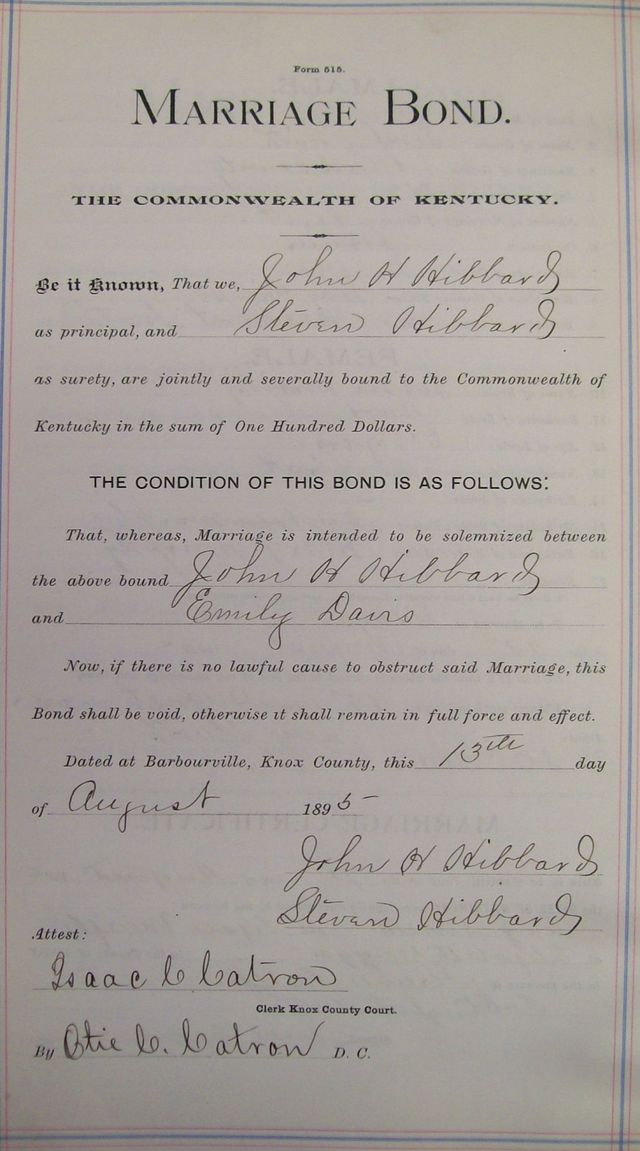 Form 515.
MARRIAGE BOND.
THE COMMONWEALTH OF KENTUCKY.
Be it Known, That we, John H Hibbard
as principal, and Steven Hibbard
as surety, are jointly and severally bound to the Commonwealth of
Kentucky in the sum of One Hundred Dollars.
THE CONDITION OF THIS BOND IS AS FOLLOWS:
That, whereas, Marriage is intended to be solemnized between
the above bound John H Hibbard
and Emily Davis
Now, if there is no lawful cause to obstruct said Marriage, this
Bond shall be void, otherwise it shall remain in full force and effect.
Dated at Barbourville, Knox County, this 13th day
of August 1895
John H Hibbard
Steven Hibbard
Attest:
Isaac C Catron
Clerk Knox County Court.
By Otie C. Catron D. C.